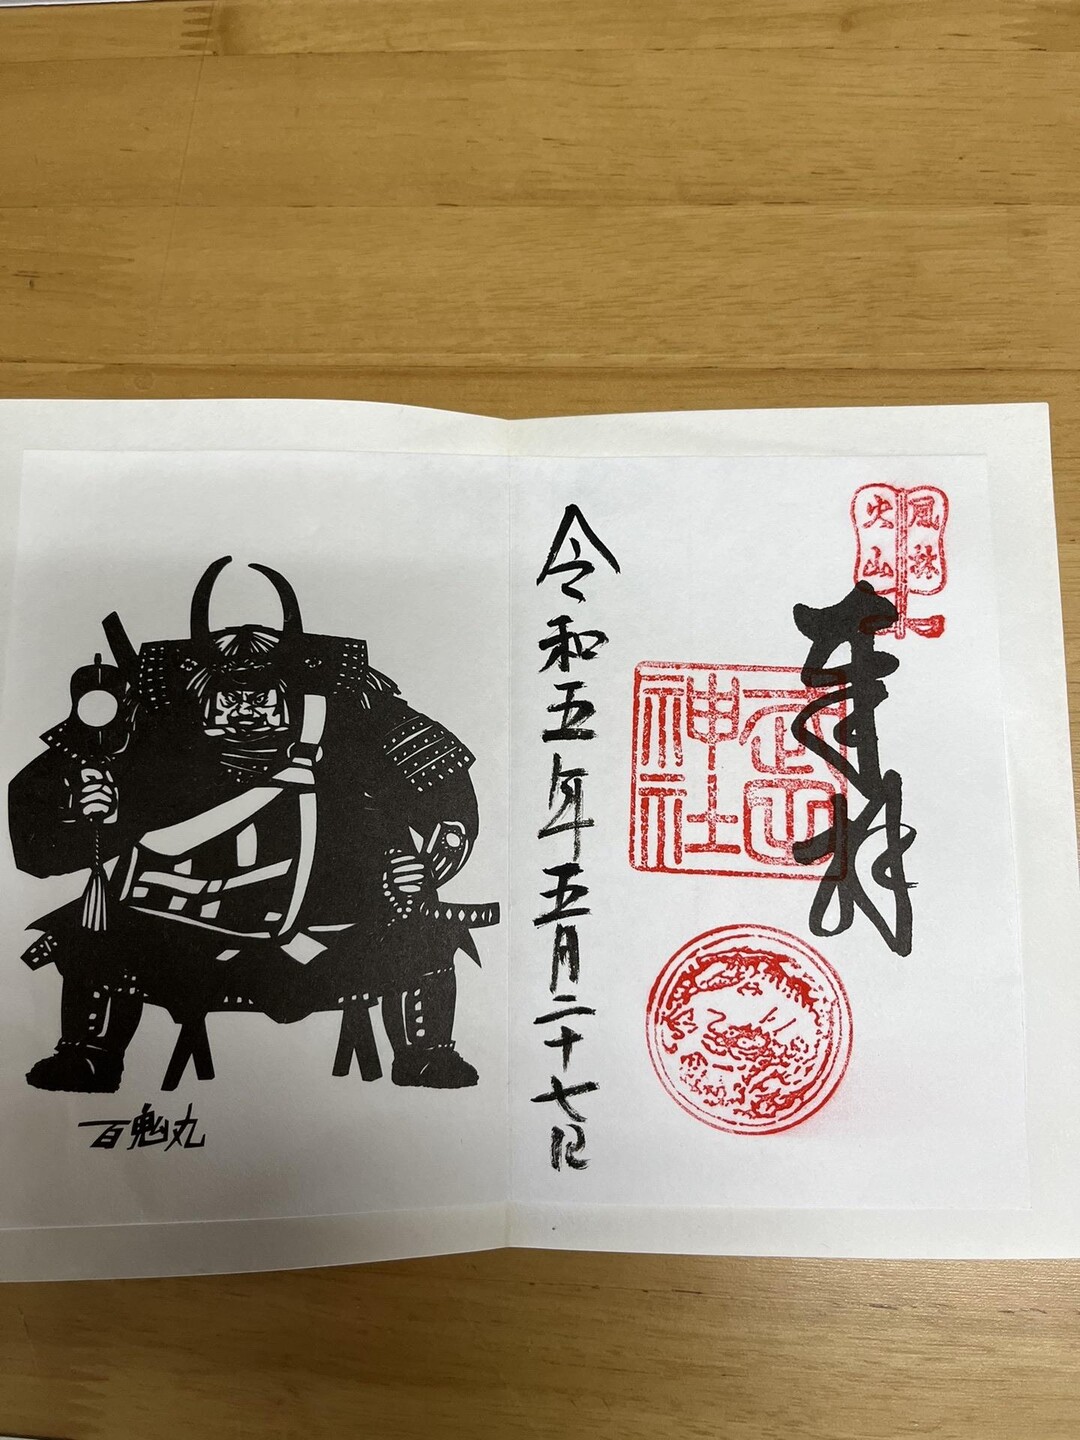 風林
火山
奉拝
武田
神社
令和五年五月二十七日
百鬼丸